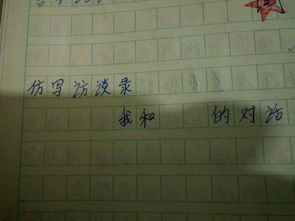 仿写访谈录
我和 的对话